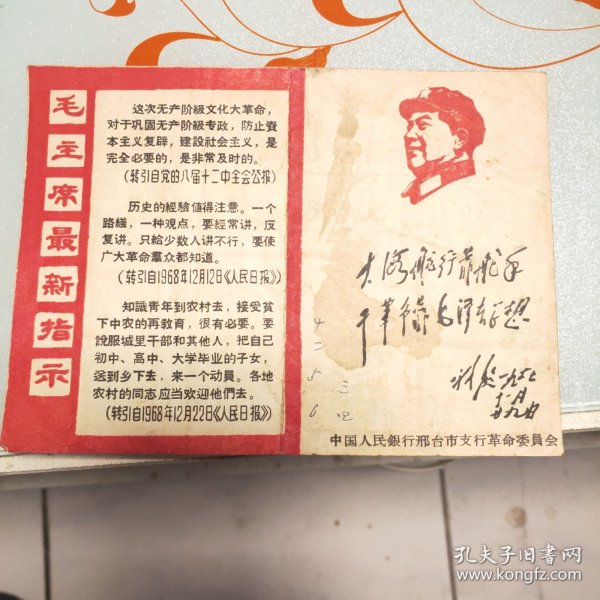 毛主席最新指示
这次无产阶級文化大革命，
对于巩固无产阶級专政，防止資
本主义复辟，建設社会主义，是
完全必要的，是非常及时的。
(转引自党的八届十二中全会公报)
历史的經驗値得注意。一个
路綫，一种观点，要經常讲，反
复讲。只給少数人讲不行，要使
广大革命羣众都知道。
(转引自1968年12月12日《人民日报》)
知識青年到农村去，接受貧
下中农的再教育，很有必要。要
說服城里干部和其他人，把自己
初中、高中、大学毕业的子女，
送到乡下去，来一个动員。各地
农村的同志应当欢迎他們去。
(转引自1968年12月22日《人民日报》)
大海航行靠舵手
干革命靠毛泽东思想
林彪 一九六七
十一月
廿九日
十
二
5
三
6
中国人民銀行邢台市支行革命委員会
孔夫子旧书网
www.kongfz.com